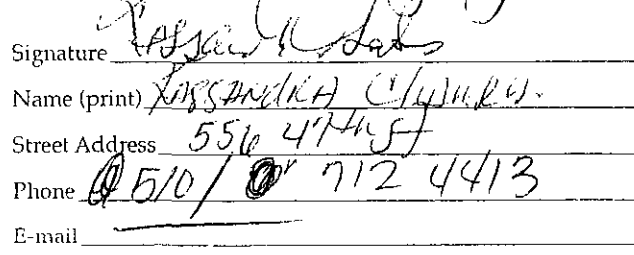 Signature
Name (print) KASSANDRA
Street Address 556 47th St
Phone 510/ 712 4413
E-mail